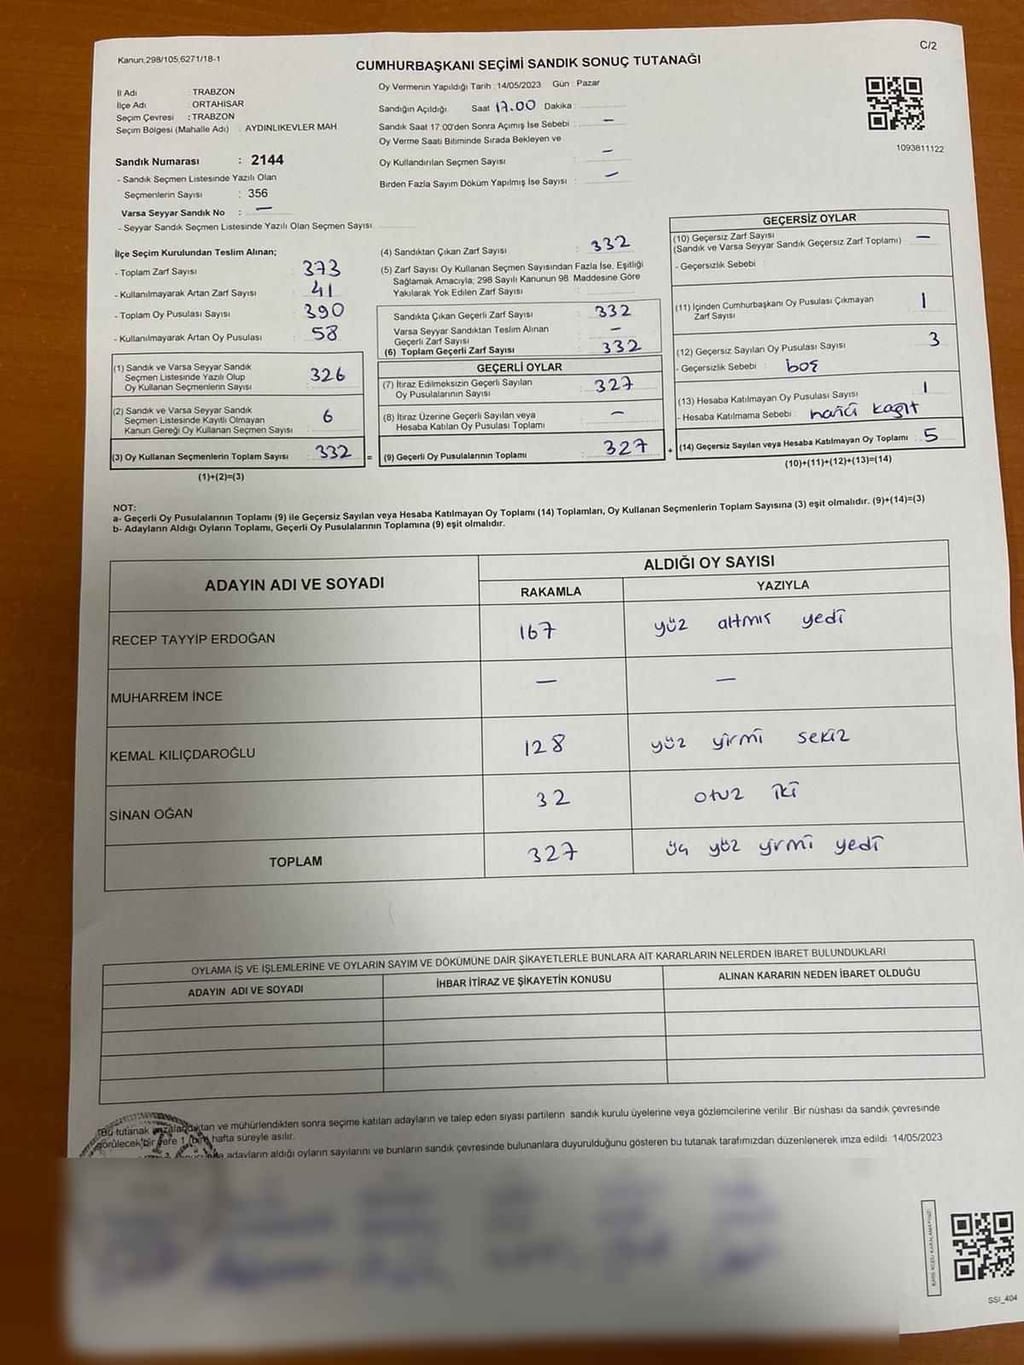 Kanun,298/105,6271/18-1
C/2
CUMHURBAŞKANI SEÇİMİ SANDIK SONUÇ TUTANAĞI
İl Adı : TRABZON
İlçe Adı : ORTAHİSAR
Seçim Çevresi : TRABZON
Seçim Bölgesi (Mahalle Adı) : AYDINLIKEVLER MAH
Sandık Numarası : 2144
- Sandık Seçmen Listesinde Yazılı Olan
Seçmenlerin Sayısı : 356
Varsa Seyyar Sandık No : —
- Seyyar Sandık Seçmen Listesinde Yazılı Olan Seçmen Sayısı
Oy Vermenin Yapıldığı Tarih : 14/05/2023 Gün : Pazar
Sandığın Açıldığı Saat 17.00 Dakika :
Sandık Saat 17:00'den Sonra Açımış İse Sebebi : —
Oy Verme Saati Bitiminde Sırada Bekleyen ve
Oy Kullandırılan Seçmen Sayısı : —
Birden Fazla Sayım Döküm Yapılmış İse Sayısı : —
1093811122
İlçe Seçim Kurulundan Teslim Alınan;
- Toplam Zarf Sayısı : 373
- Kullanılmayarak Artan Zarf Sayısı : 41
- Toplam Oy Pusulası Sayısı : 390
- Kullanılmayarak Artan Oy Pusulası : 58
(1) Sandık ve Varsa Seyyar Sandık
Seçmen Listesinde Yazılı Olup
Oy Kullanan Seçmenlerin Sayısı : 326
(2) Sandık ve Varsa Seyyar Sandık
Seçmen Listesinde Kayıtlı Olmayan
Kanun Gereği Oy Kullanan Seçmen Sayısı : 6
(3) Oy Kullanan Seçmenlerin Toplam Sayısı : 332 =
(1)+(2)=(3)
(4) Sandıktan Çıkan Zarf Sayısı : 332
(5) Zarf Sayısı Oy Kullanan Seçmen Sayısından Fazla İse, Eşitliği
Sağlamak Amacıyla; 298 Sayılı Kanunun 98. Maddesine Göre
Yakılarak Yok Edilen Zarf Sayısı :
Sandıkta Çıkan Geçerli Zarf Sayısı : 332
Varsa Seyyar Sandıktan Teslim Alınan
Geçerli Zarf Sayısı : —
(6) Toplam Geçerli Zarf Sayısı : 332
GEÇERLİ OYLAR
(7) İtiraz Edilmeksizin Geçerli Sayılan
Oy Pusulalarının Sayısı : 327
(8) İtiraz Üzerine Geçerli Sayılan veya
Hesaba Katılan Oy Pusulası Toplamı : —
(9) Geçerli Oy Pusulalarının Toplamı : 327 +
GEÇERSİZ OYLAR
(10) Geçersiz Zarf Sayısı
(Sandık ve Varsa Seyyar Sandık Geçersiz Zarf Toplamı) : —
- Geçersizlik Sebebi :
(11) İçinden Cumhurbaşkanı Oy Pusulası Çıkmayan
Zarf Sayısı : 1
(12) Geçersiz Sayılan Oy Pusulası Sayısı : 3
- Geçersizlik Sebebi : boş
(13) Hesaba Katılmayan Oy Pusulası Sayısı : 1
- Hesaba Katılmama Sebebi : harici kağıt
(14) Geçersiz Sayılan veya Hesaba Katılmayan Oy Toplamı : 5
(10)+(11)+(12)+(13)=(14)
NOT:
a- Geçerli Oy Pusulalarının Toplamı (9) ile Geçersiz Sayılan veya Hesaba Katılmayan Oy Toplamı (14) Toplamları, Oy Kullanan Seçmenlerin Toplam Sayısına (3) eşit olmalıdır. (9)+(14)=(3)
b- Adayların Aldığı Oyların Toplamı, Geçerli Oy Pusulalarının Toplamına (9) eşit olmalıdır.
ADAYIN ADI VE SOYADI ALDIĞI OY SAYISI
RAKAMLA YAZIYLA
RECEP TAYYİP ERDOĞAN 167 yüz altmış yedi
MUHARREM İNCE — —
KEMAL KILIÇDAROĞLU 128 yüz yirmi sekiz
SİNAN OĞAN 32 otuz iki
TOPLAM 327 üç yüz yirmi yedi
OYLAMA İŞ VE İŞLEMLERİNE VE OYLARIN SAYIM VE DÖKÜMÜNE DAİR ŞİKAYETLERLE BUNLARA AİT KARARLARIN NELERDEN İBARET BULUNDUKLARI
ADAYIN ADI VE SOYADI İHBAR İTİRAZ VE ŞİKAYETİN KONUSU ALINAN KARARIN NEDEN İBARET OLDUĞU
Bu tutanak imzalandıktan ve mühürlendikten sonra seçime katılan adayların ve talep eden siyasi partilerin sandık kurulu üyelerine veya gözlemcilerine verilir. Bir nüshası da sandık çevresinde
görülecek bir yere 1 (bir) hafta süreyle asılır.
adayların aldığı oyların sayılarını ve bunların sandık çevresinde bulunanlara duyurulduğunu gösteren bu tutanak tarafımızdan düzenlenerek imza edildi. 14/05/2023
SSI_404